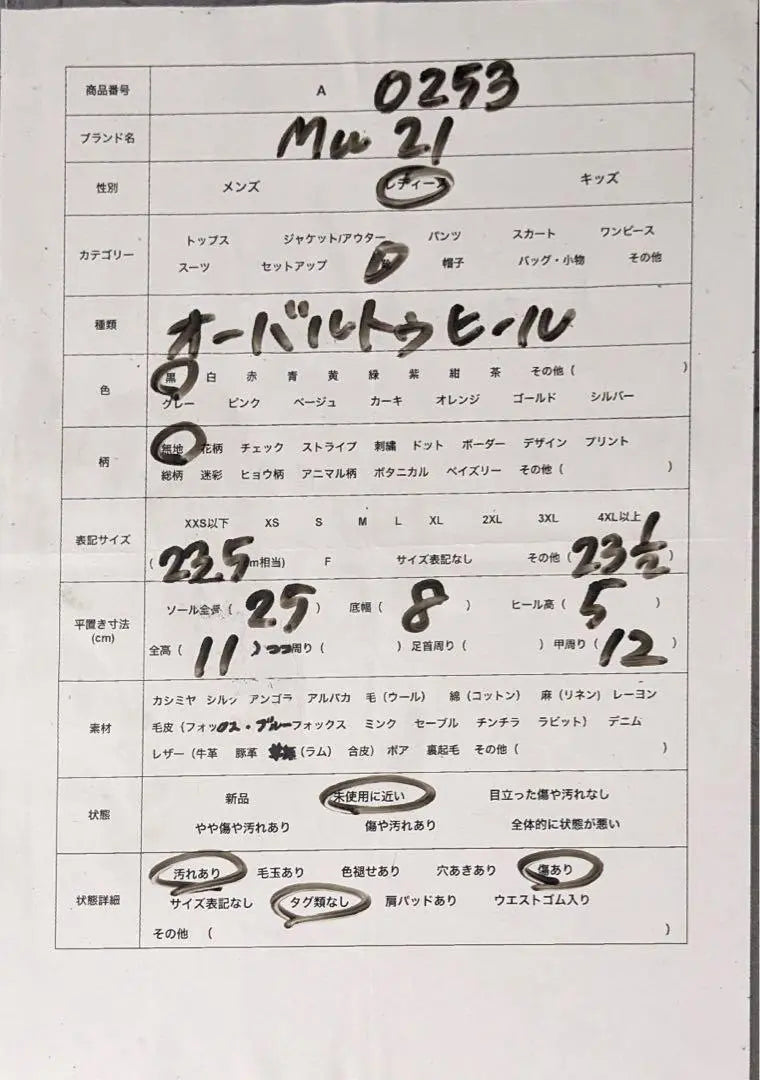 商品番号 A 0253
ブランド名 Mu 21
性別 メンズ レディース キッズ
カテゴリー トップス ジャケット/アウター パンツ スカート ワンピース
スーツ セットアップ 帽子 バッグ・小物 その他
種類 オーバルトゥヒール
色 黒 白 赤 青 黄 緑 紫 紺 茶 その他 ( )
グレー ピンク ベージュ カーキ オレンジ ゴールド シルバー
柄 無地 花柄 チェック ストライプ 刺繍 ドット ボーダー デザイン プリント
総柄 迷彩 ヒョウ柄 アニマル柄 ボタニカル ペイズリー その他 ( )
表記サイズ XXS以下 XS S M L XL 2XL 3XL 4XL以上
( 23.5 cm相当) F サイズ表記なし その他 ( 23 1/2 )
平置き寸法 (cm) ソール全長 ( 25 ) 底幅 ( 8 ) ヒール高 ( 5 )
全高 ( 11 ) 周り ( ) 足首周り ( ) 甲周り ( 12 )
素材 カシミヤ シルク アンゴラ アルパカ 毛 (ウール) 綿 (コットン) 麻 (リネン) レーヨン
毛皮 (フォックス・ブルーフォックス ミンク セーブル チンチラ ラビット) デニム
レザー (牛革 豚革 (ラム) 合皮) ボア 裏起毛 その他 ( )
状態 新品 未使用に近い 目立った傷や汚れなし
やや傷や汚れあり 傷や汚れあり 全体的に状態が悪い
状態詳細 汚れあり 毛玉あり 色褪せあり 穴あきあり 傷あり
サイズ表記なし タグ類なし 肩パッドあり ウエストゴム入り
その他 ( )